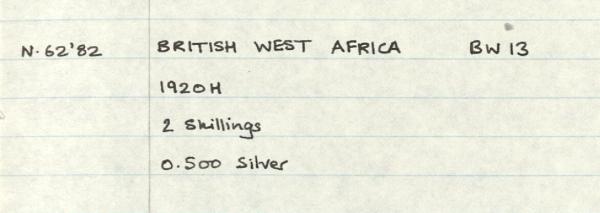 N.62'82 BRITISH WEST AFRICA BW 13
1920H
2 Shillings
0.500 Silver